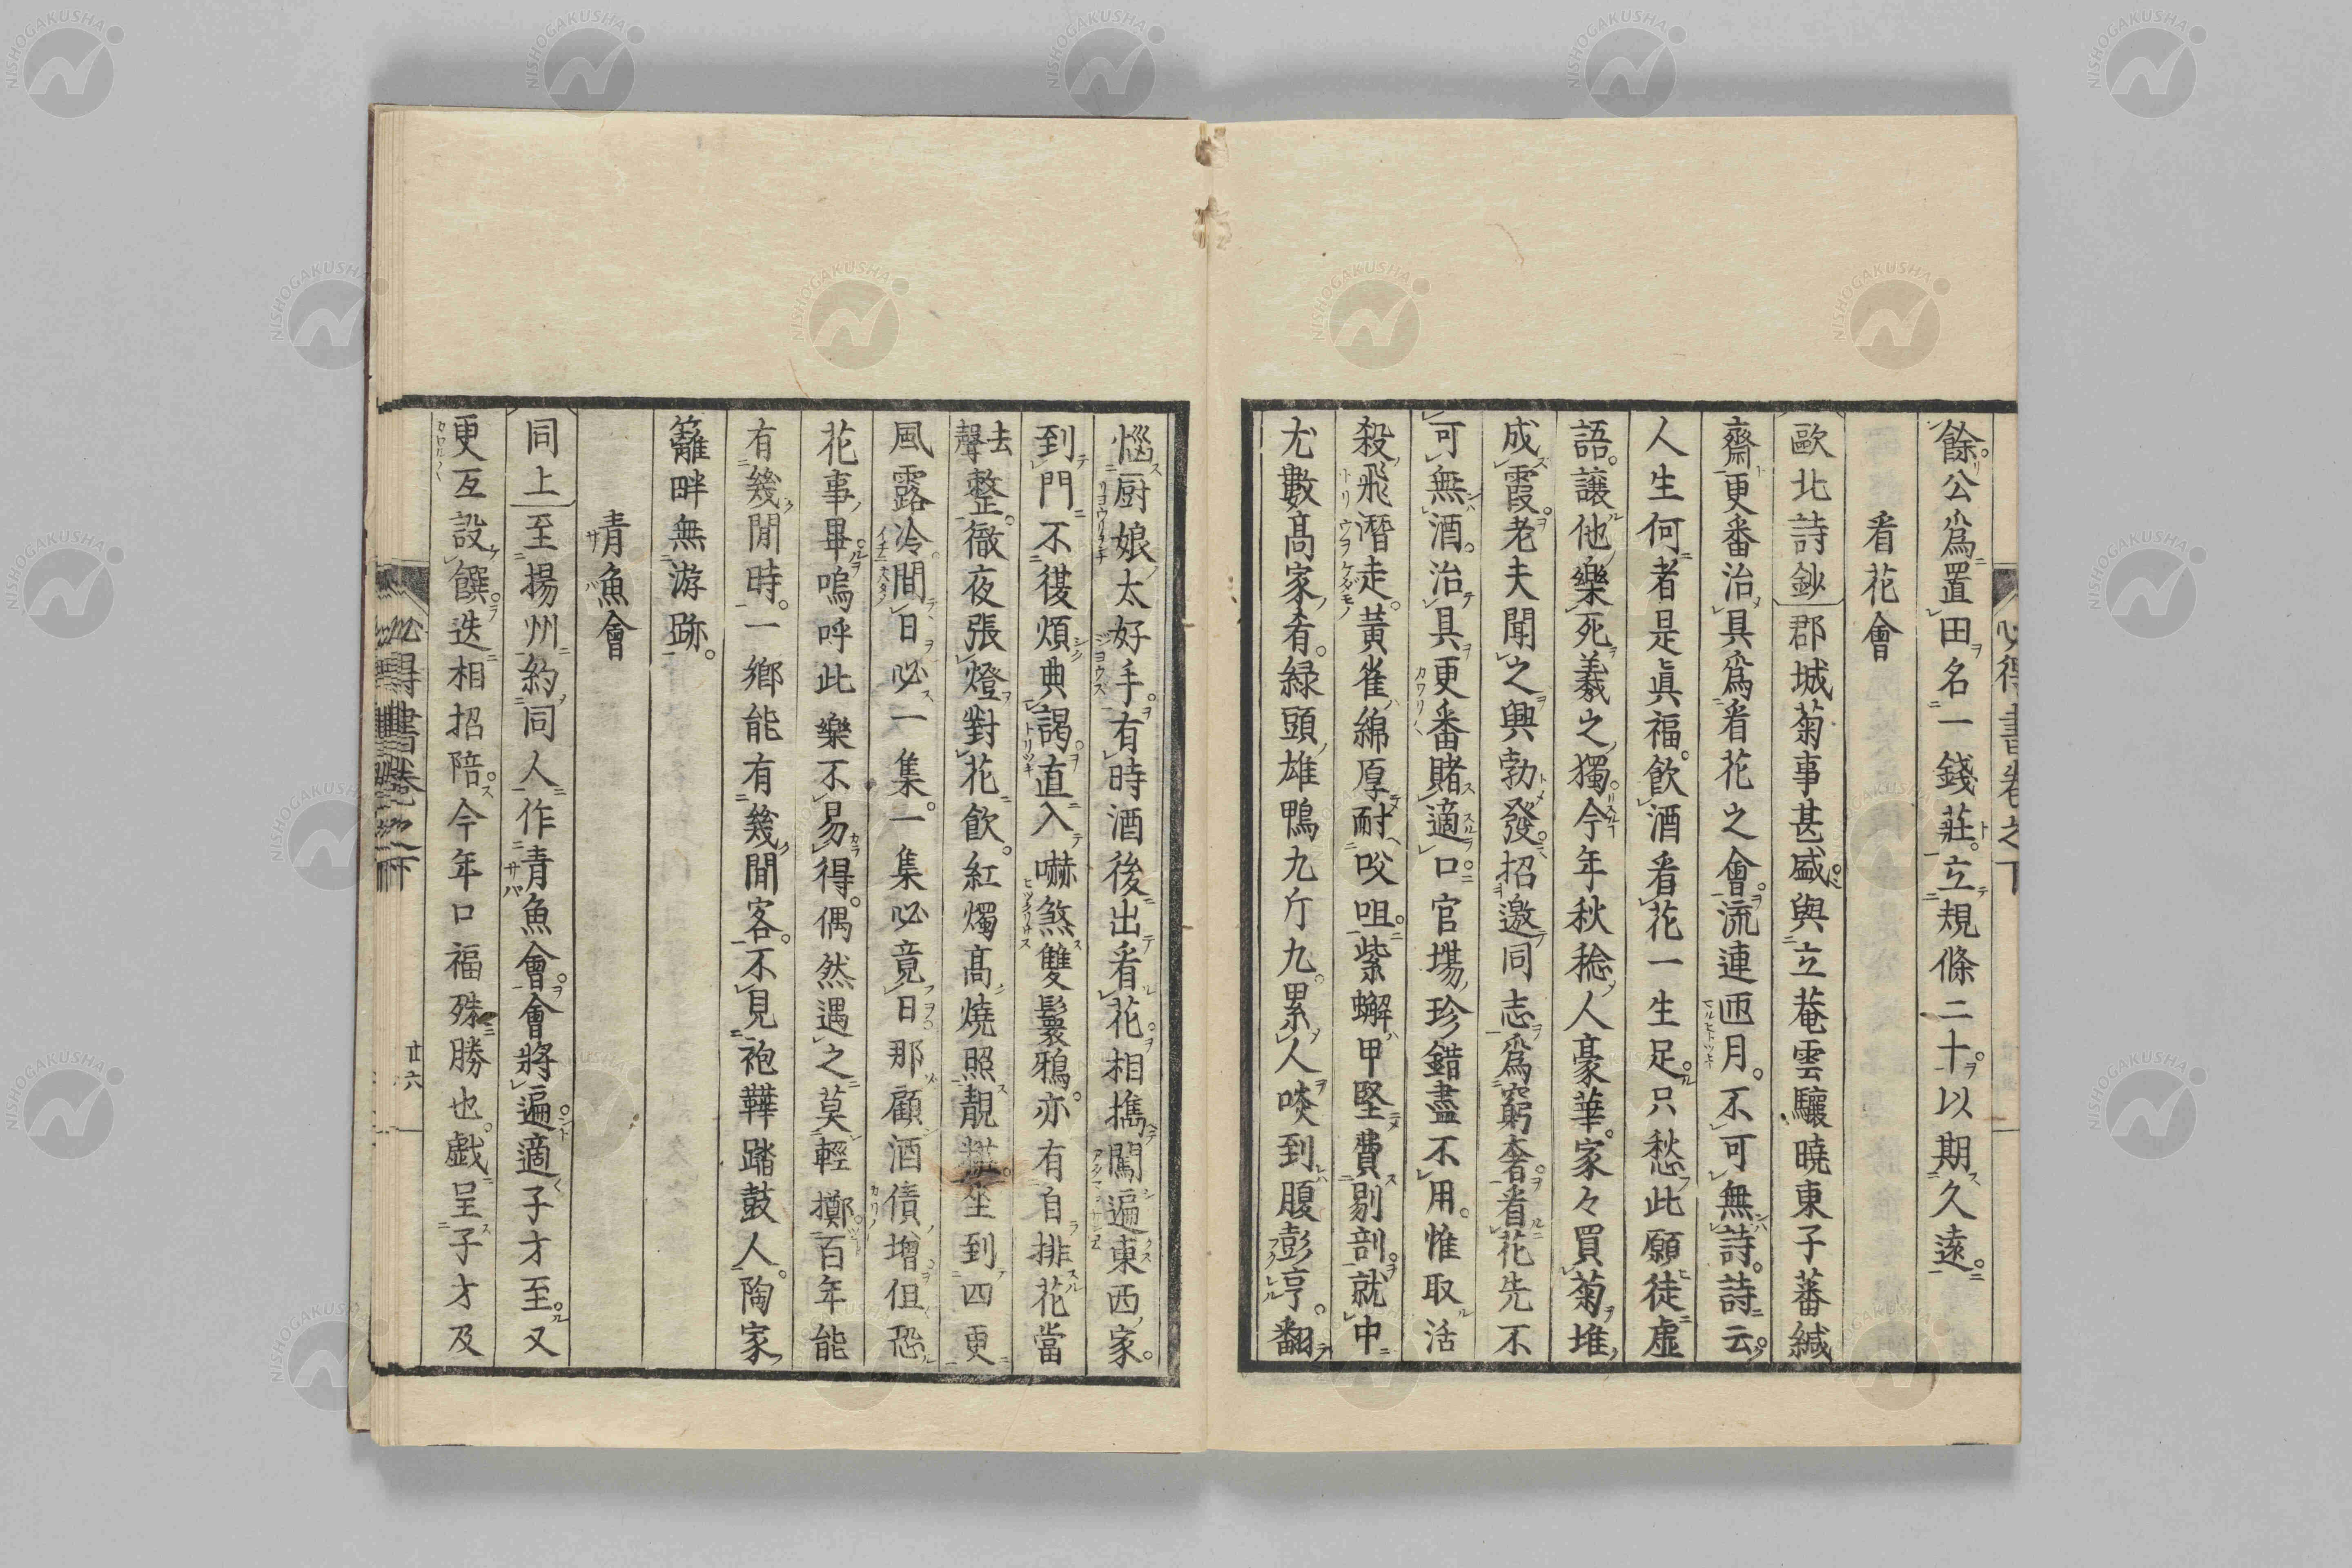 餘公爲置田名一錢莊立規條二十以期久遠
看花會
歐北詩鈔 郡城菊事甚盛與立菴雲驤曉東子蕃緘
齋更番治具爲看花之會流連匝月不可無詩詩云
人生何者是眞福飲酒看花一生足只愁此願徒虛
語讓他樂死羲之獨今年秋稔人豪華家々買菊堆
成霞老夫聞之興勃發招邀同志爲窮奢看花先不
可無酒治具更番賭適口官塲珍錯盡不用惟取活
殺飛潛走黃雀綿厚耐咬咀紫蠏甲堅費剔剖就中
尤數高家肴綠頭雄鴨九斤九累人啖到腹彭亨翻
惱厨娘太好手有時酒後出看花相擕闖遍東西家
到門不復煩典謁直入嚇煞雙鬟鴉亦有自排花當
去聲整徹夜張燈對花飲紅燭高燒照靚糚坐到四更
風露冷間日必一集一集必竟日那顧酒債增但恐
花事畢嗚呼此樂不易得偶然遇之莫輕擲百年能
有幾閒時一鄉能有幾閒客不見袍鞾踏鼓人陶家
籬畔無游跡
青魚會
同上 至揚州約同人作青魚會會將遍適子才至又
更互設饌迭相招陪今年口福殊勝也戯呈子才及
心得書卷之下
心得書卷之下
廿六
NISHOGAKUSHA